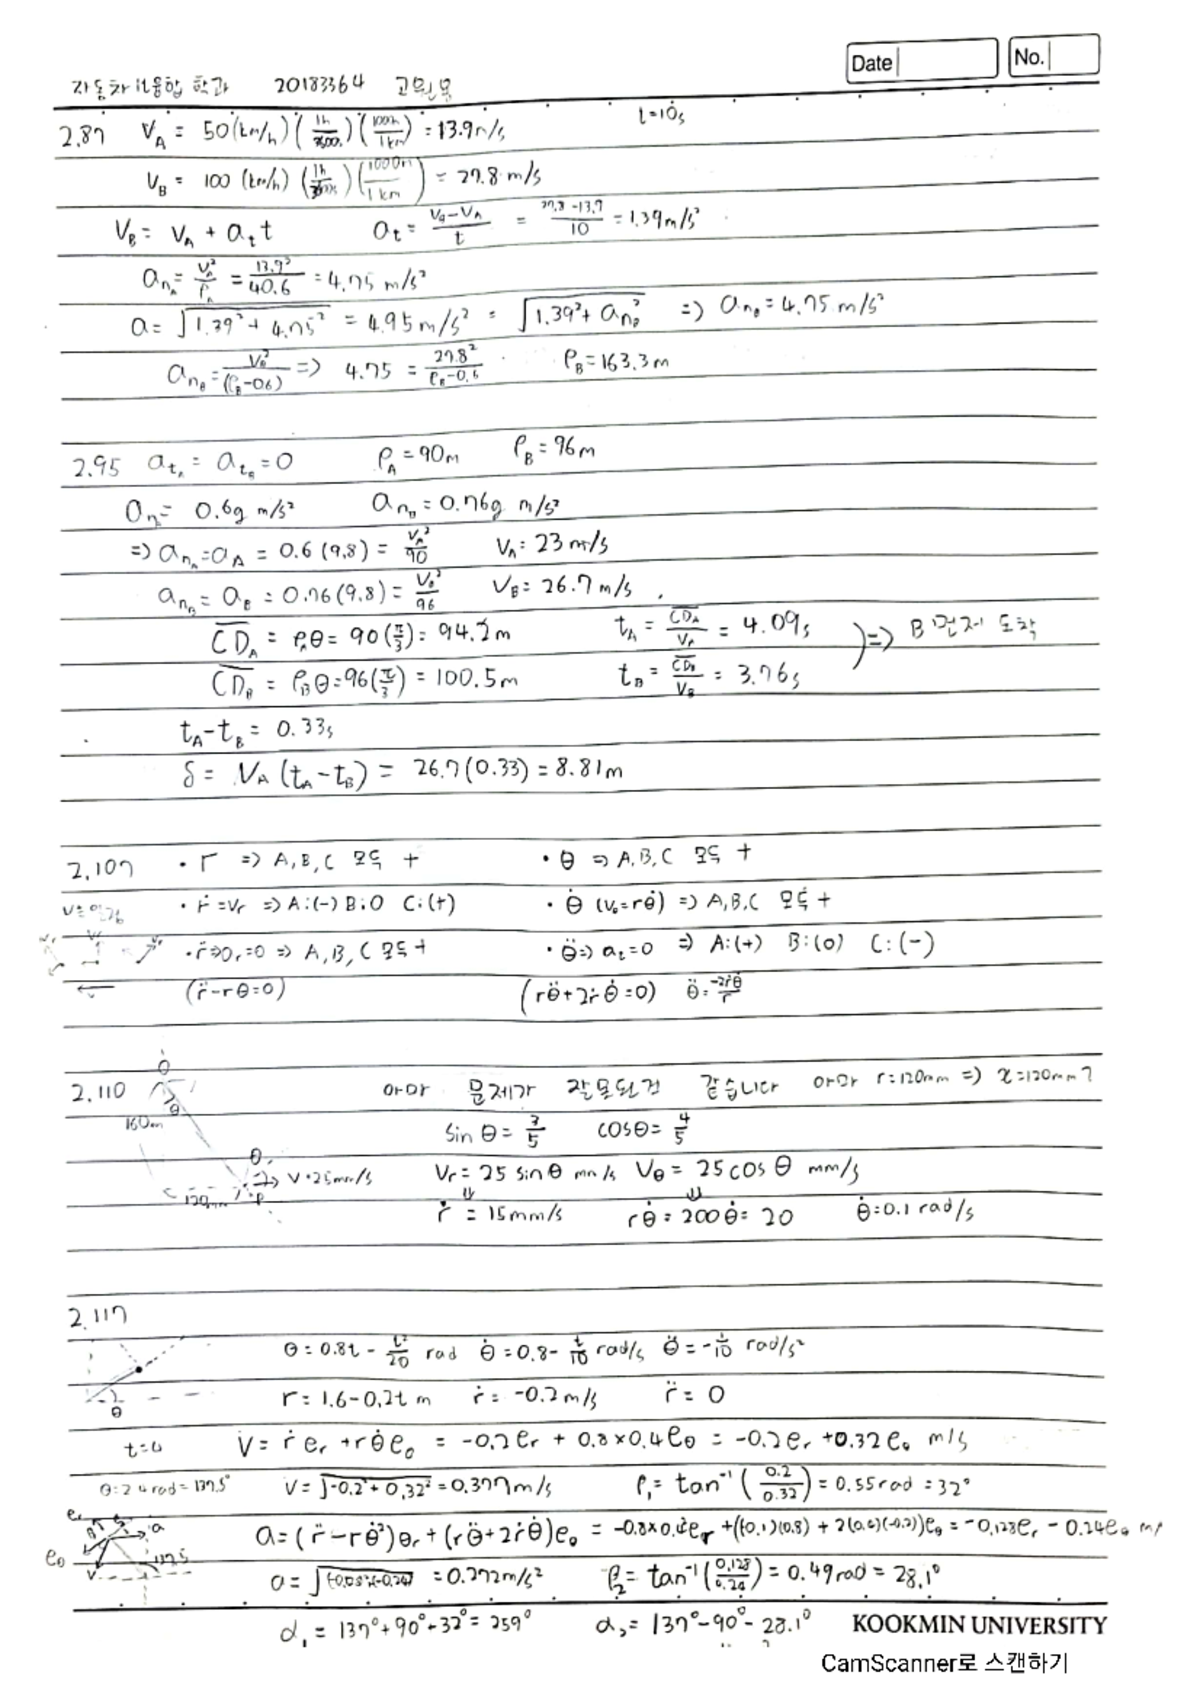 Date No.
자동차 IT융합 학과 20183364
t=10s
2.87 V_A = 50 (km/h) (1h/3600s) (1000m/1km) = 13.9m/s
V_B = 100 (km/h) (1h/3600s) (1000m/1km) = 27.8 m/s
V_B = V_A + a_t t a_t = (V_B-V_A)/t = (27.8-13.9)/10 = 1.39m/s²
a_nA = V_A²/ρ_A = 13.9²/40.6 = 4.75 m/s²
a = √(1.39²+4.75²) = 4.95m/s² = √(1.39²+a_nB²) => a_nB = 4.75 m/s²
a_nB = V_B²/(ρ_B-0.6) => 4.75 = 27.8²/(ρ_B-0.6) ρ_B = 163.3m
2.95 a_tA = a_tB = 0 ρ_A = 90m ρ_B = 96m
a_n = 0.6g m/s² a_nB = 0.76g m/s²
=> a_nA = a_A = 0.6 (9.8) = V_A²/90 V_A = 23 m/s
a_nB = a_B = 0.76 (9.8) = V_B²/96 V_B = 26.7 m/s
CD_A = ρ_Aθ = 90(π/3) = 94.2m t_A = CD_A/V_A = 4.09s
CD_B = ρ_Bθ = 96(π/3) = 100.5m t_B = CD_B/V_B = 3.76s ) => B 먼저 도착
t_A-t_B = 0.33s
δ = V_A (t_A-t_B) = 26.7(0.33) = 8.81m
2.107 · r => A, B, C 모두 + · θ => A, B, C 모두 +
V = 일정 · ṙ = v_r => A:(-) B:0 C:(+) · θ̇ (v_θ = rθ̇) => A, B, C 모두 +
· r̈ => a_r = 0 => A, B, C 모두 + · θ̈ => a_t = 0 => A:(+) B:(0) C:(-)
(r̈-rθ=0) (rθ̈+2ṙθ̇=0) θ̈ = -2ṙθ̇/r
2.110 아마 문제가 잘못된건 같습니다 아마 r=120mm => x=120mm?
O
θ
160m
sin θ = 3/5 cosθ = 4/5
θ V=25mm/s V_r = 25 sin θ mm/s V_θ = 25 cos θ mm/s
120mm P
ṙ = 15mm/s rθ̇ = 200θ̇ = 20 θ̇ = 0.1 rad/s
2.117
θ = 0.8t - t²/20 rad θ̇ = 0.8 - t/10 rad/s θ̈ = -1/10 rad/s²
θ r = 1.6-0.2t m ṙ = -0.2 m/s r̈ = 0
t=4 V = ṙ e_r + rθ̇ e_θ = -0.2e_r + 0.8×0.4e_θ = -0.2e_r + 0.32e_θ m/s
θ=2.4rad=137.5° V = √(-0.2²+0.32²) = 0.377m/s β₁ = tan⁻¹(0.2/0.32) = 0.55rad = 32°
a = (r̈-rθ̇²)e_r + (rθ̈+2ṙθ̇)e_θ = -0.8×0.4²e_r + ((-0.1)(0.8) + 2(0.4)(-0.2))e_θ = -0.128e_r - 0.24e_θ m/
e_r a e_θ V 137.5
a = = 0.272m/s² β₂ = tan⁻¹(0.128/0.24) = 0.49rad = 28.1°
α₁ = 137°+90°+32° = 259° α₂ = 137°-90°-28.1°
KOOKMIN UNIVERSITY
CamScanner로 스캔하기